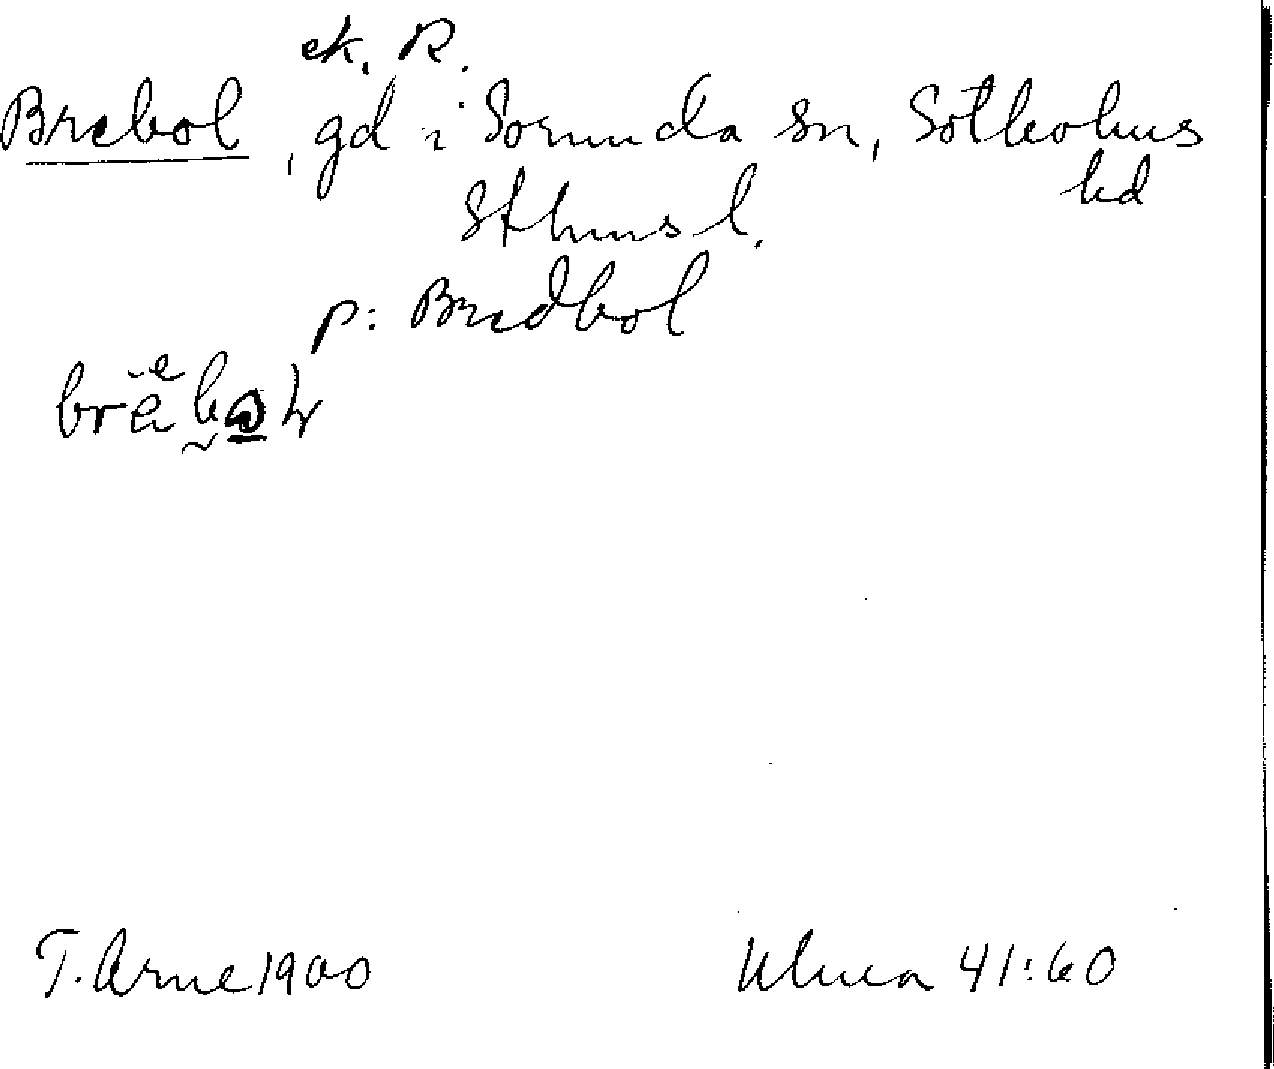 ek. R.
Brebol, gd i Sorunda sn, Sotholms
hd
Sthlms l.
p: Bredbol
T. Arne 1900
Ulma 41:60